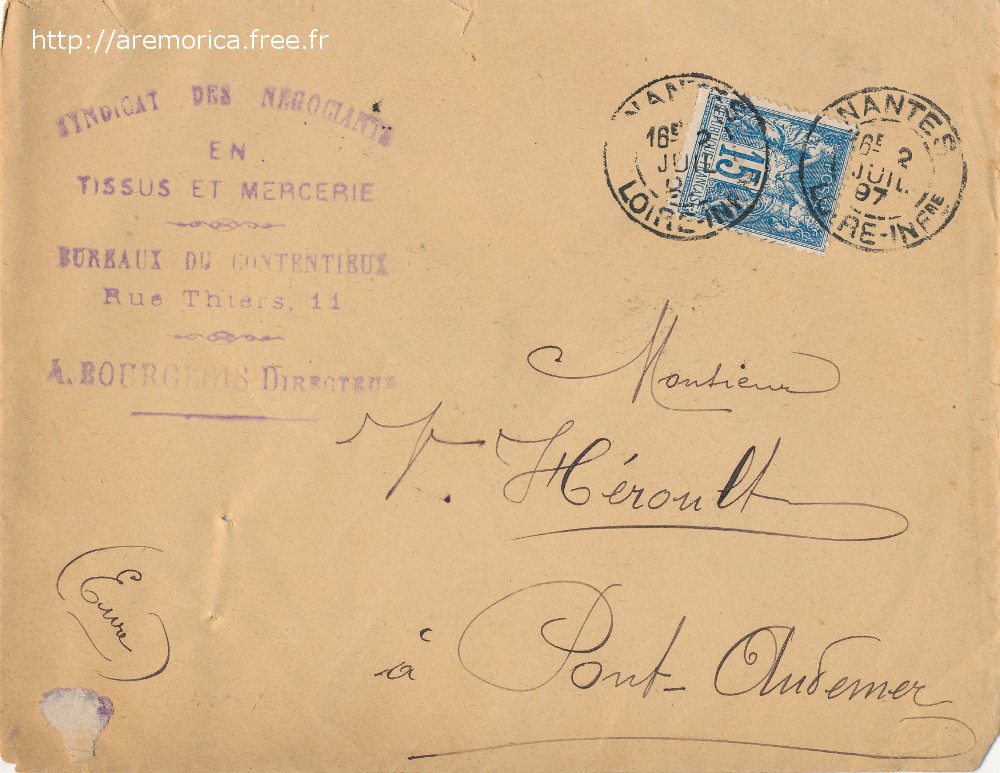 http://aremorica.free.fr
SYNDICAT DES NEGOCIANTS
EN
TISSUS ET MERCERIE
BUREAUX DU CONTENTIEUX
Rue Thiers, 11
A. BOURGEOIS DIRECTEUR
NANTES
16E 2
JUIL
LOIRE-INF
15
NANTES
16E 2
JUIL
97
LOIRE-INFRE
Monsieur
Hérault
à Pont-Audemer
(Eure)